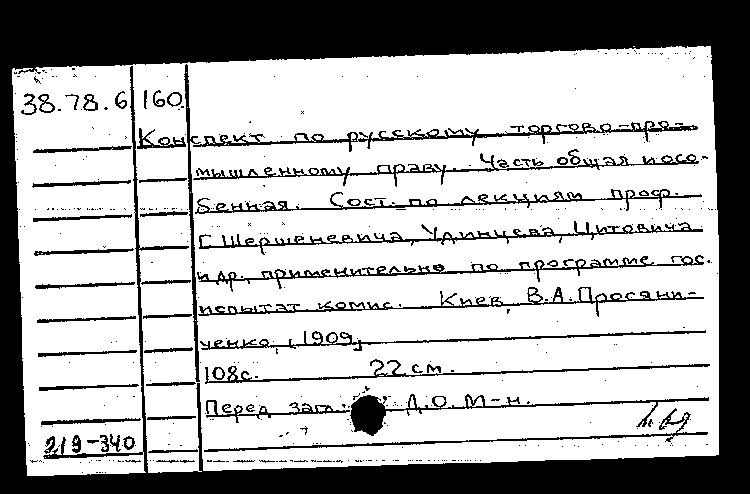 38.78.6 160
Конспект по русскому торгово-про-
мышленному праву. Часть общая и осо-
бенная. Сост. по лекциям проф.
Г. Шершеневича, Удинцева, Цитовича
и др., применительно по программе гос.
испытат. комис. Киев, В.А. Просяни-
ченко, [1909]
108с. 22 см.
Перед загл.: Д.О. М-н.
219-340